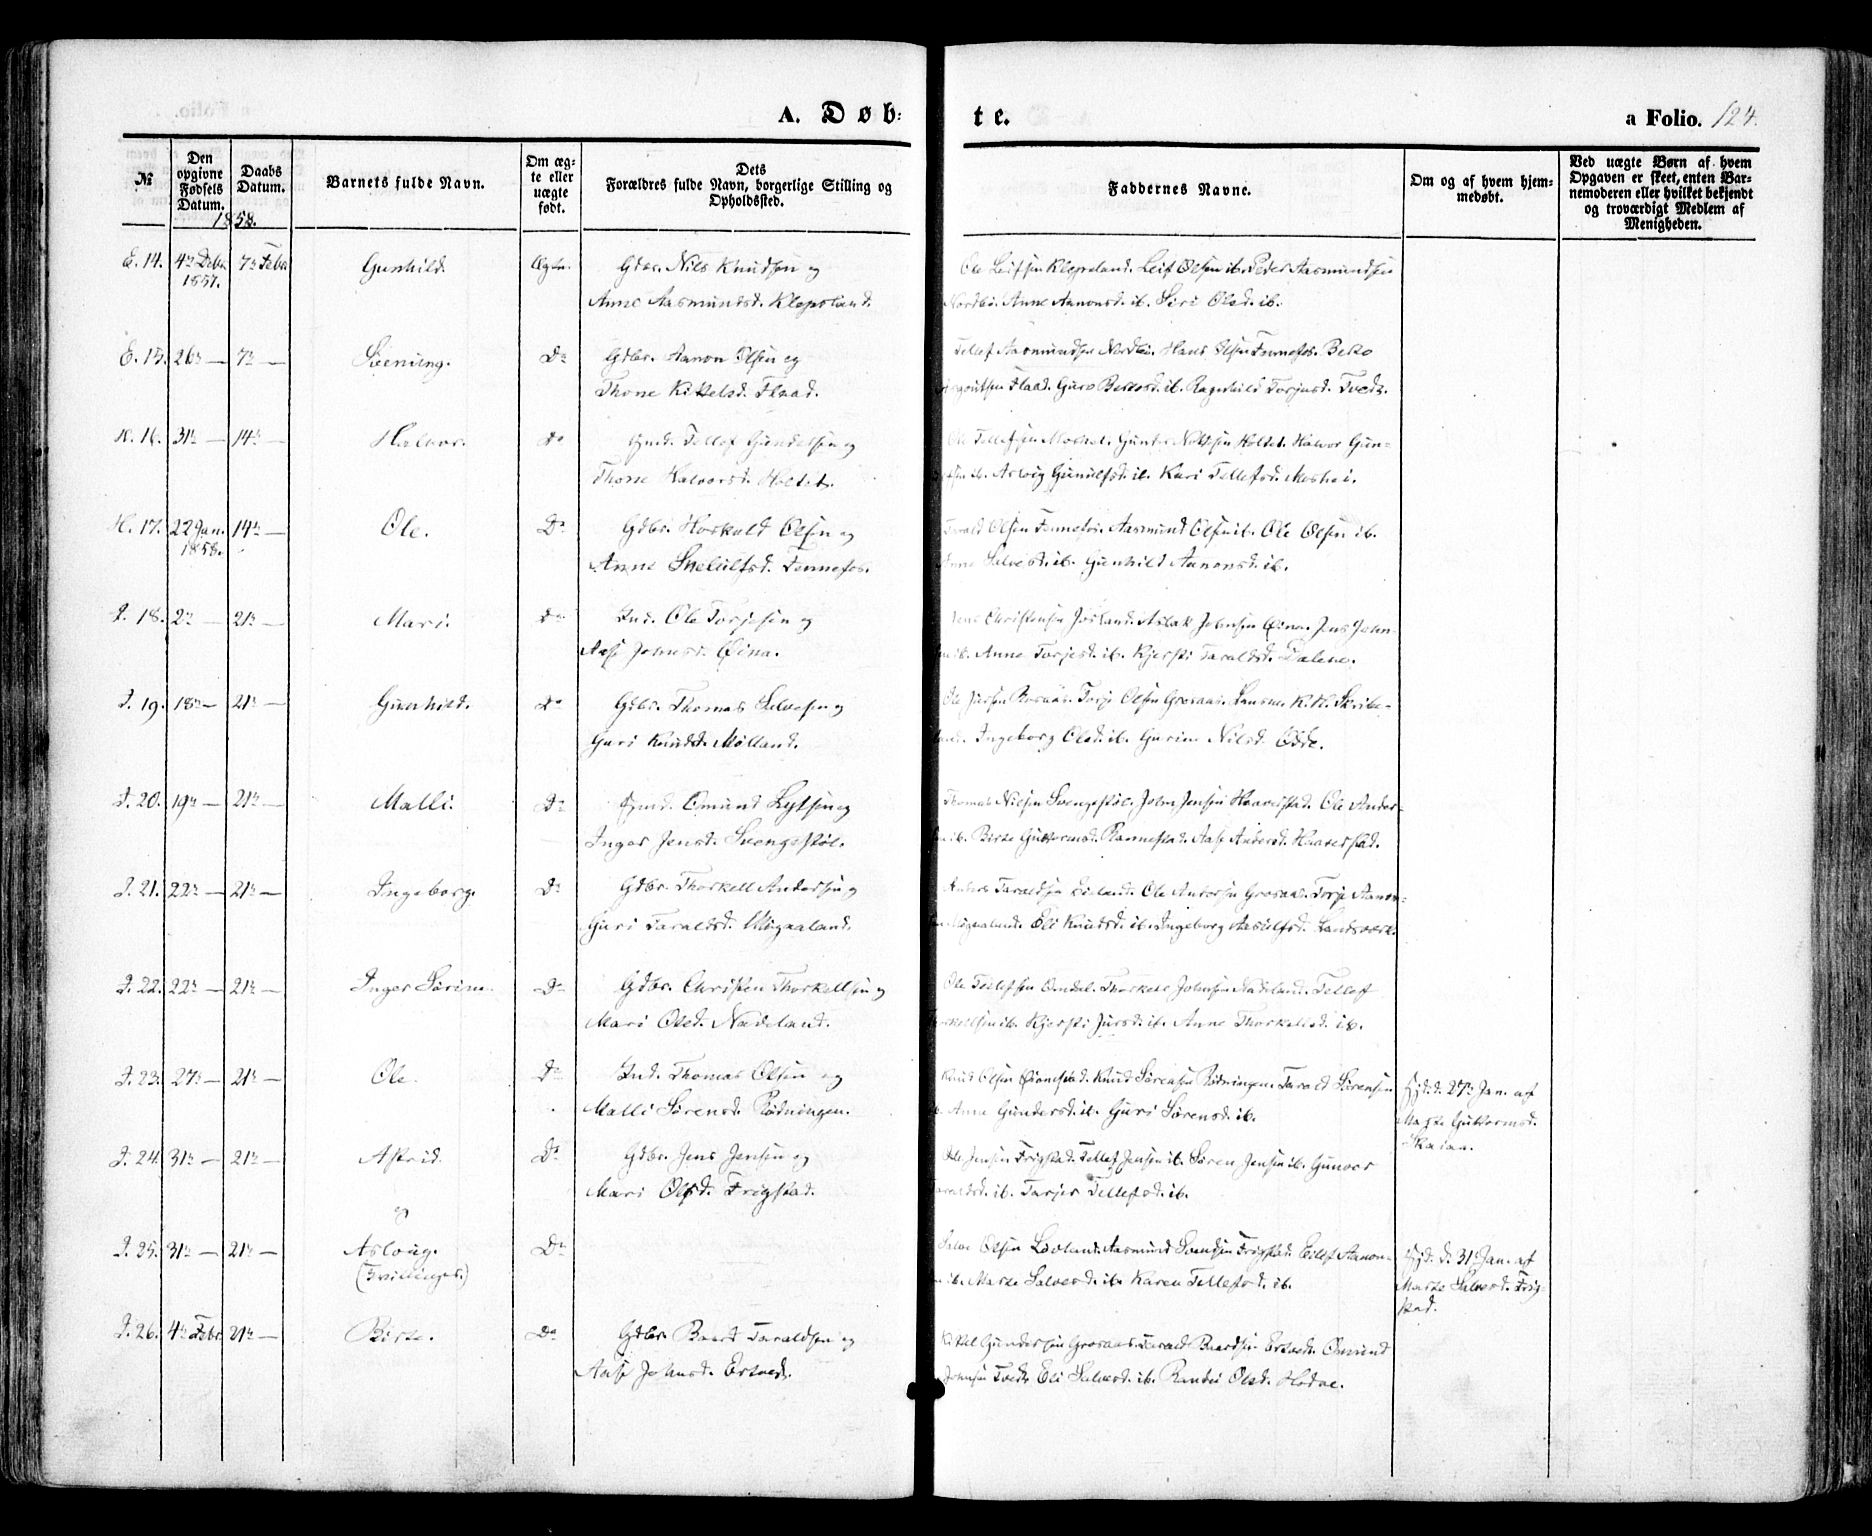 A. Døb:
te.
a Folio. 124.
№
Den opgivne Fødsels Datum.
Daabs Datum.
Barnets fulde Navn.
Om ægte eller uægte født.
Dets
Forældres fulde Navn, borgerlige Stilling og
Opholdssted.
Faddernes Navne.
Om og af hvem hjemmedøbt.
Ved uægte Børn af hvem
Opgaven er skeet, enten Barnemoderen eller hvilket bekjendt
og troværdigt Medlem af
Menigheden.
1858.
E. 14. 4de Debr. 7de Febr. Gunhild. Ægte. Gdbr. Nils Knudsen og
1857.
Anne Aasmundsd. Klepsland.
Ole Leifsen Klepsland. Leif Olsen ib. Peder Aasmundsen
Nordbö. Anne Aanonsd. ib. Siri Olsd. ib.
E. 15. 26de — 7de — Svenung. Do Gdbr. Aanon Olsen og
Thone Kittelsd. Flaad.
Tellef Aasmundsen Nordbö. Hans Olsen Fennefos. Berto
Flaad. Guro ib. Ragnhild Torjusd. Tvedt.
H. 16. 31te — 14de — Halvor. Do Tellef Gundersen og
Thone Halvorsd. Holtet.
Ole Tellefsen Moseid. Holtet. Halvor Gun-
ib. Asloug Gunulfsd. ib. Kari Tellefsd. Moshei.
H. 17. 22 Jan. 14de — Ole. Do Gdbr. Horkuld Olsen og
1858.
Anne Sveiulfsd. Fennefos.
Tarald Olsen Fennefos. Aasmund Olsen ib. Ole Olsen ib.
Anne Salvesd. ib. Gunhild Aanonsd. ib.
I. 18. 2de — 21de — Mari. Do Ind. Ole Torjesen og
Aase Johnsd. Øina.
Jens Christensen Aslak Johnsen Øina. Jens John-
ib. Anne Torjesd. ib. Kjersti Taraldsd. Dalene.
I. 19. 18de — 21de — Gunhild. Do Gdbr. Thomas Salvesen og
Guri Knudsd. Mølland.
Ole Torje Olsen Grosaas. K. K. Skribe-
land. Ingeborg Olsd. ib. Gurine Nilsd. Odde.
I. 20. 19de — 21de — Malli. Do Omund
Inger Jensd. Svengestöl.
Thomas Nilsen Svengestöl. John Jensen Haaverstad. Ole Ander-
sen ib. Birte Guttormsd. Rannestad. Aase Andersd. Haaverstad.
I. 21. 22de — 21de — Ingeborg. Do Gdbr. Thorkell Andersen og
Guri Taraldsd. Møgaaland.
Anders Taraldsen Ole Andersen Grosaas. Torje Aanon-
sen Møgaaland. Eli Knudsd. ib. Ingeborg Aasulfsd. Landsværk.
I. 22. 22de — 21de — Inger Sørine. Do Gdbr. Christen Thorkellsen og
Mari Olsd. Nadeland.
Ole Tellefsen Omdal. Thorkell Johnsen Nadeland. Tellef
Thorkellsen ib. Kjersti Jursd. ib. Anne Thorkellsd. ib.
I. 23. 27de — 21de — Ole. Do Ind. Thomas Olsen og
Malli Sørensd. Rödningen.
Knud Olsen Knud Sörensen Rödningen. Tarald Sörensen
ib. Anne Gundersd. ib. Guri Sörensd. ib.
Hjd. d. 27de Jan. af
Marte Guttormsd.
Skaiaa.
I. 24. 31te — 21de — Astrid. Do Gdbr. Jens Jensen og
Mari Olsd. Frigstad.
Ole Jensen Frigstad. Tellef Jensen ib. Sören Jensen ib. Gunvor
Taraldsd. ib. Torjer Tellefsd. ib.
og
I. 25. 31te — 21de — Asloug. Do
(Tvillinger.)
Salve Olsen Lövland. Aasmund Svendsen Frigstad. Eilef Aanon-
sen ib. Marte Salvesd. ib. Karen Tellefsd. ib.
Hjd. d. 31 Jan. af
Marte Salvesd. Frig-
stad.
I. 26. 4de Febr. 21de — Birte. Do Gdbr. Baard Taraldsen og
Aase Johnsd. Ertveds.
Kittel Gundersen Grosaas. Tarald Baardsen Ertveds. Omund
Johnsen Tvedt. Eli Salvesd. ib. Randi Olsd. Hodne.